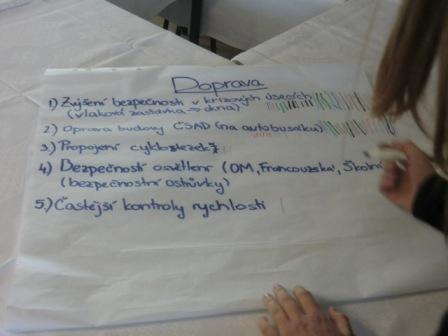 Doprava
1.) Zvýšení bezpečnosti v krizových úsecích
(vlaková zastávka => okna)
2.) Oprava budovy ČSAD (na autobusáku)
3.) Propojení cyklostezek
4.) Bezpečností osvětlení (OM, Francouzská,
(bezpečnostní ostrůvky)
5.) Častější kontroly rychlosti